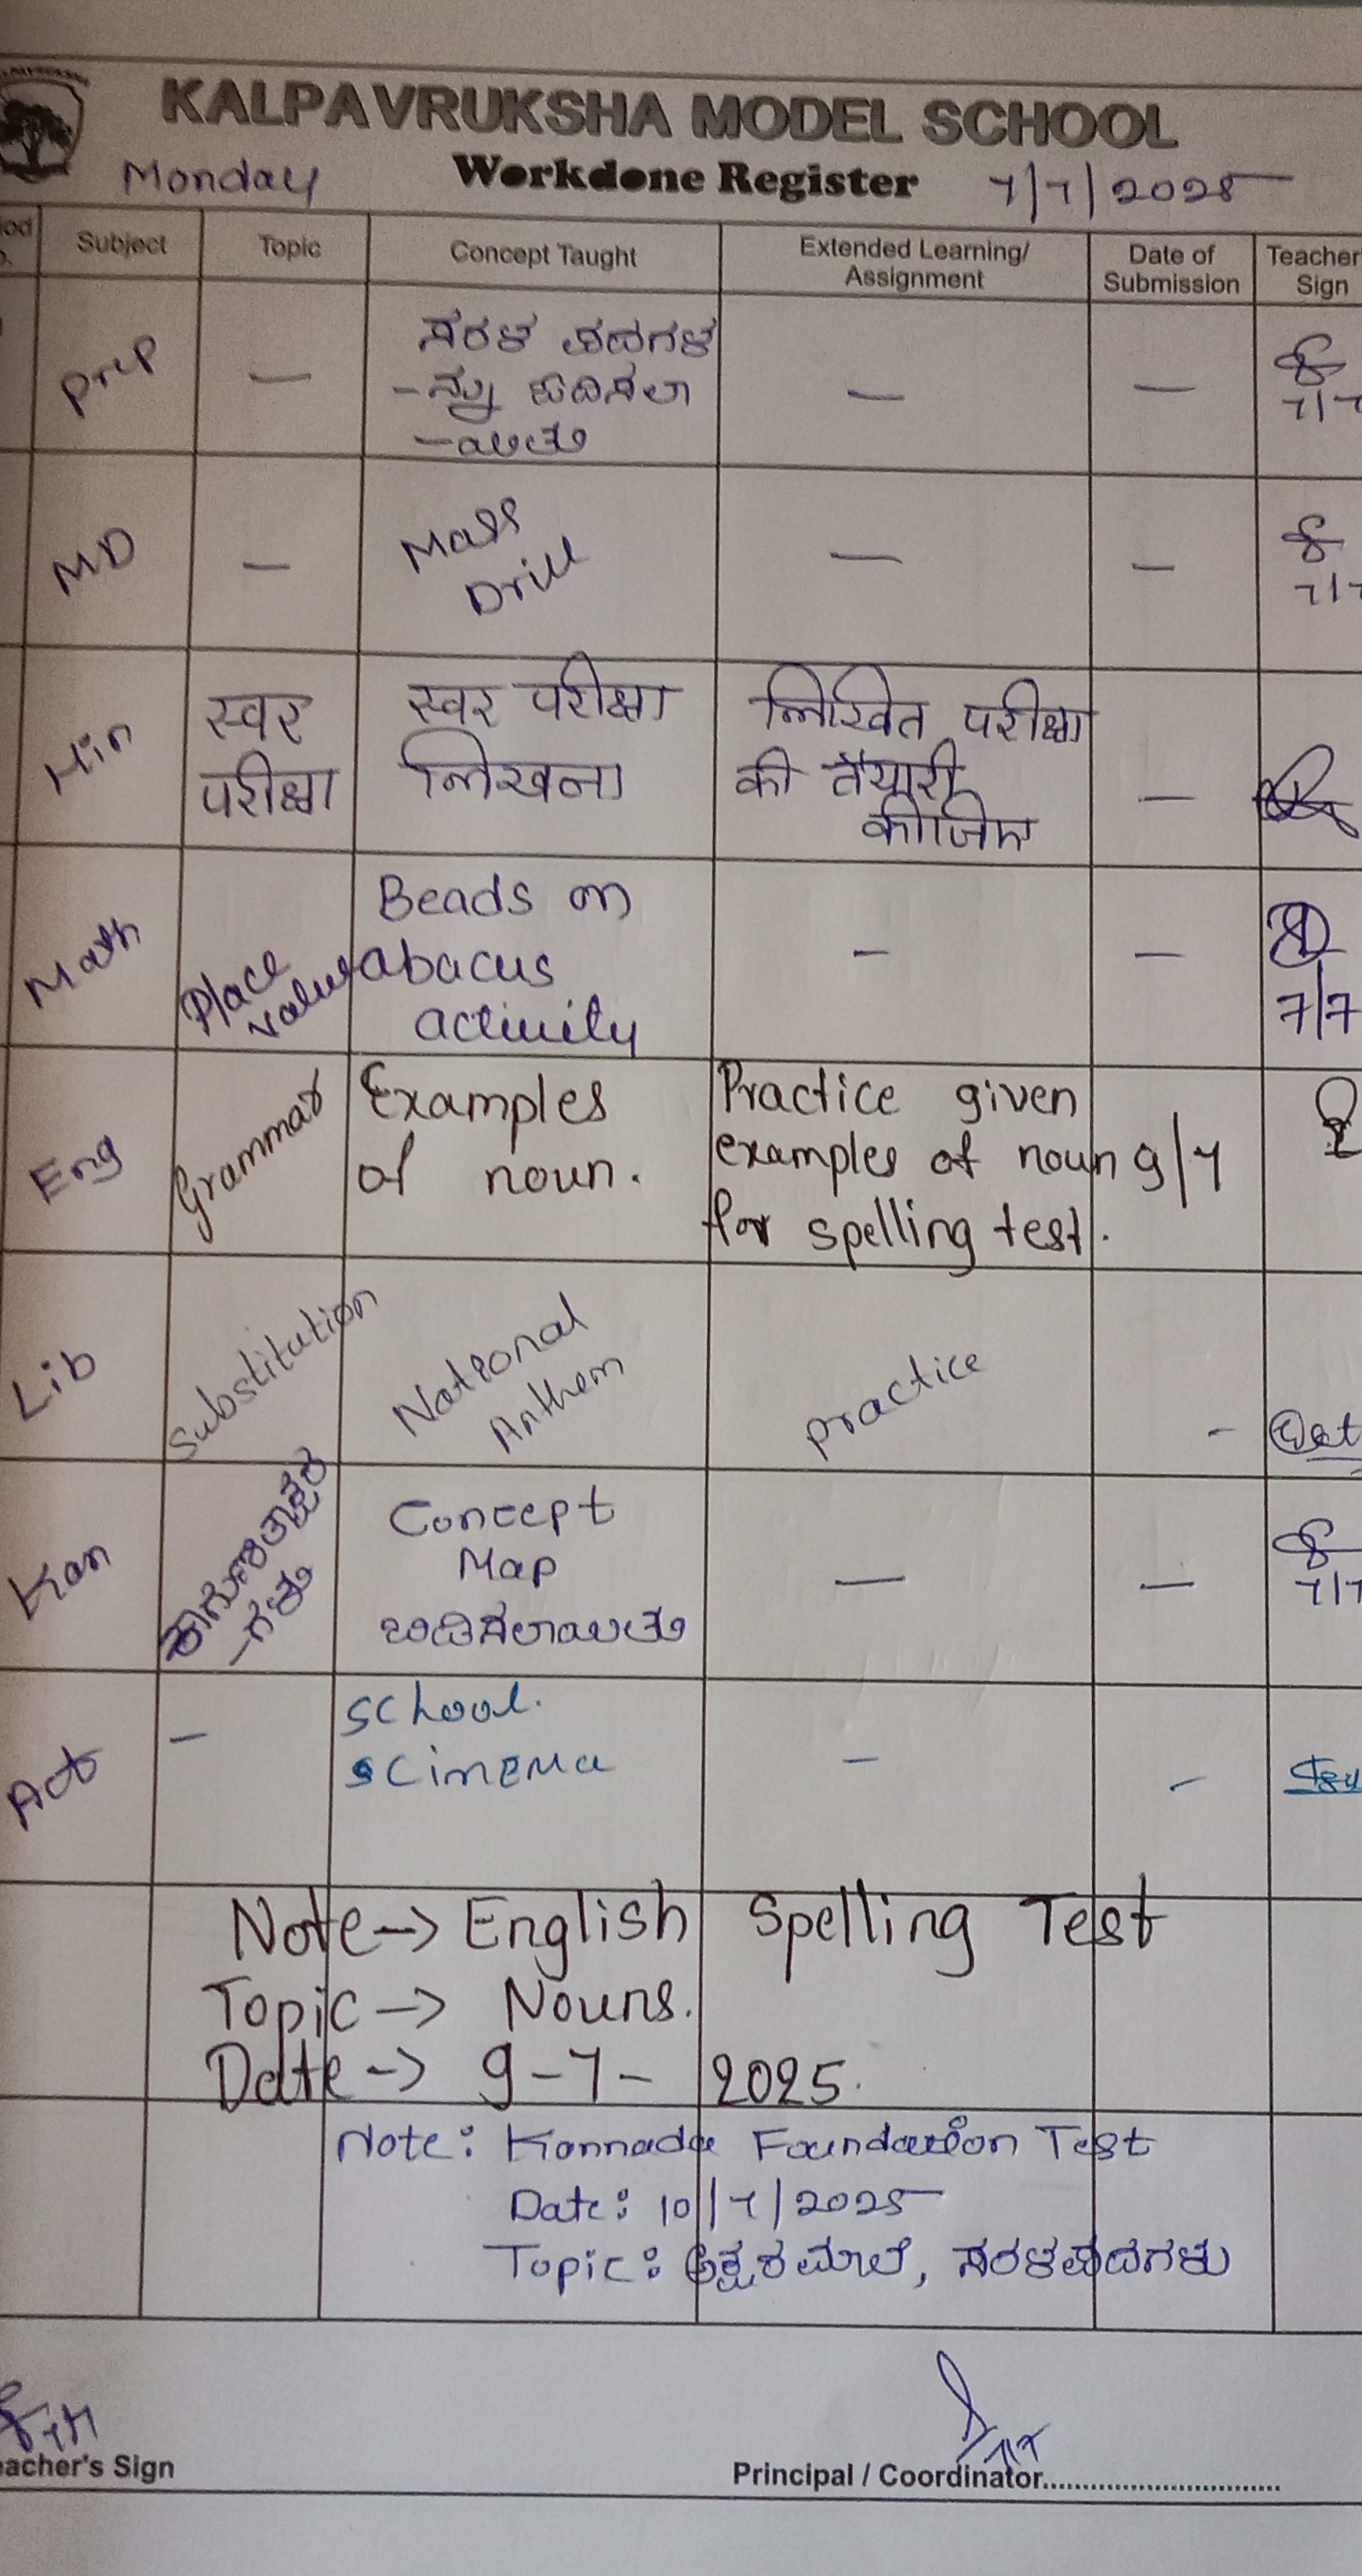 KALPAVRUKSHA MODEL SCHOOL
Monday Workdone Register 7/7/2025
Subject Topic Concept Taught Extended Learning/ Assignment Date of Submission Teacher Sign
Prep — ಸರಳ ಪದಗಳ — —
-ನ್ನು ಓದಿಸಲಾ
-ಯಿತು
7/7
MD — Mass — —
Drill
7/7
Hin स्वर स्वर परीक्षा लिखित परीक्षा
परीक्षा लिखना की तैयारी —
कीजिए
Math Place Beads on — —
value abacus
activity 7/7
Eng Grammar Examples Practice given
of noun. examples of noun 9/7
for spelling test.
Lib Substitution National practice -
Anthem
Kan ಕಾಗುಣಿತಾಕ್ಷರ Concept — —
-ಗಳು Map 7/7
ಬಿಡಿಸಲಾಯಿತು
Act — School. — -
Cinema
Note -> English Spelling Test
Topic -> Nouns.
Date -> 9-7-2025.
Note: Kannada Foundation Test
Date: 10/7/2025
Topic: ಅಕ್ಷರಮಾಲೆ, ಸರಳಪದಗಳು
acher's Sign
Principal / Coordinator